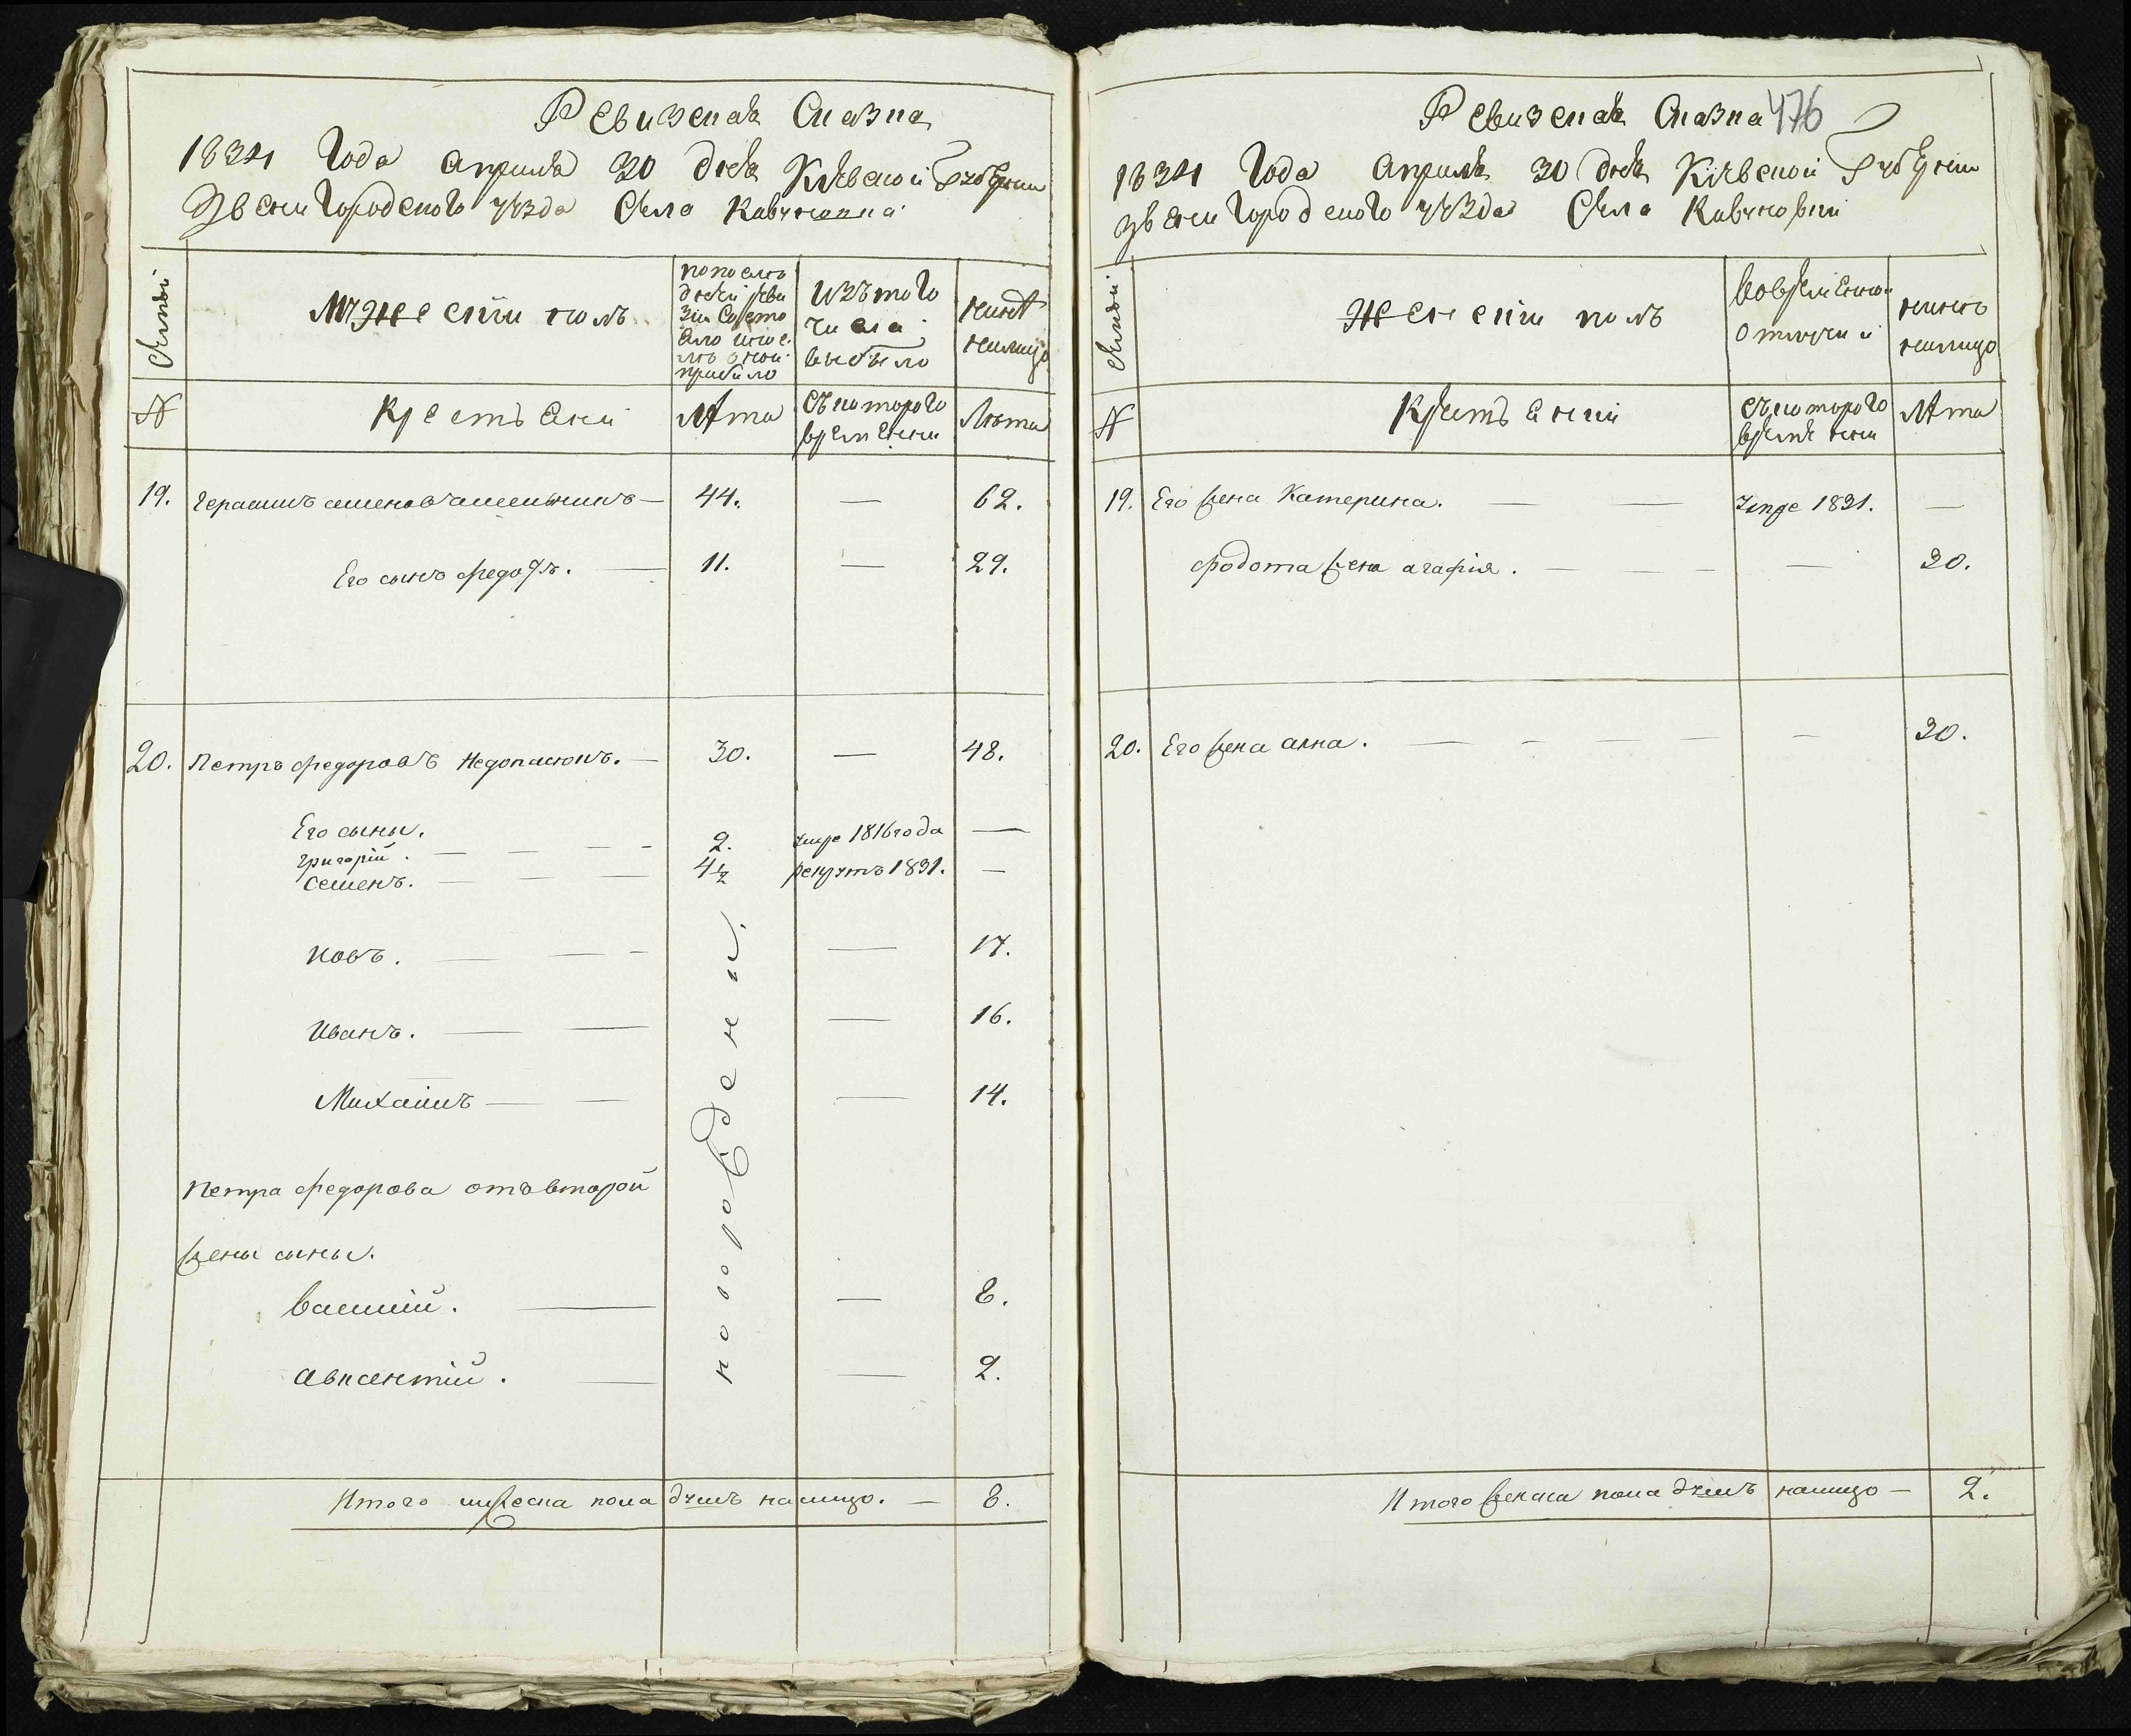 Ревизская Сказка
1834 Года Апреля 30 дня Кіевской Губерніи
Звенигородского уѣзда Села
Семьи
Мужескій полъ
по последней реви
зіи состо
яло и после
оной
прибыло
Изъ того
числа
выбыло
нинѣ
налицо
№
Крестьяни
Лѣта
Съ которого
времѣни
Лѣта
19. Герасимъ семеновъ — 44. — 62.
Его сынъ федотъ. — 11. — 29.
20. Петръ федоровъ Недопасюкъ. — 30. — 48.
Его сыны.
григорій. — — — - 2. умре 1816 года —
Семенъ. — — — 4½ рекрутъ 1831. —
новорождении.
Иовъ. — — - — 17.
Иванъ. — — — 16.
Михаилъ — — — 14.
Петра федорова отъ второй
жены сыны.
василій. — — 8.
авксентій. — — 2.
Итого мужеска пола душъ налицо. — 8.
Ревизская Сказка 476
1834 Года Апреля 30 дня Кіевской Губерніи
Звенигородского уѣзда Села
Семьи
Женскій полъ
Вовременной
отлучки
нинѣ
налицо
№
Крестьянки
Съ которого
времѣни
Лѣта
19. Его жена Катерина. — — Умре 1831. —
федота жена агафія. — — — — 30.
20. Его жена анна. — - — — — 30.
Итого женска пола душъ налицо — 2.